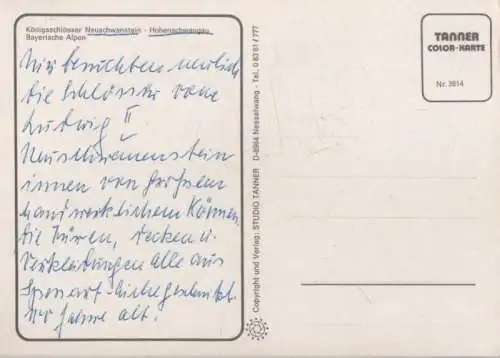 Königsschlösser Neuschwanstein - Hohenschwangau
Bayerische Alpen
Wir besuchten neulich
die Schlösser von
Ludwig II
Neuschwanstein
innen von großem
handwerklichem Können,
die Türen, Decken u.
Verkleidungen alle aus
geschnitzt.
Jahre alt.
Copyright und Verlag: STUDIO TANNER D-8964 Nesselwang - Tel. 0 83 61 / 777
TANNER
COLOR-KARTE
Nr. 3814